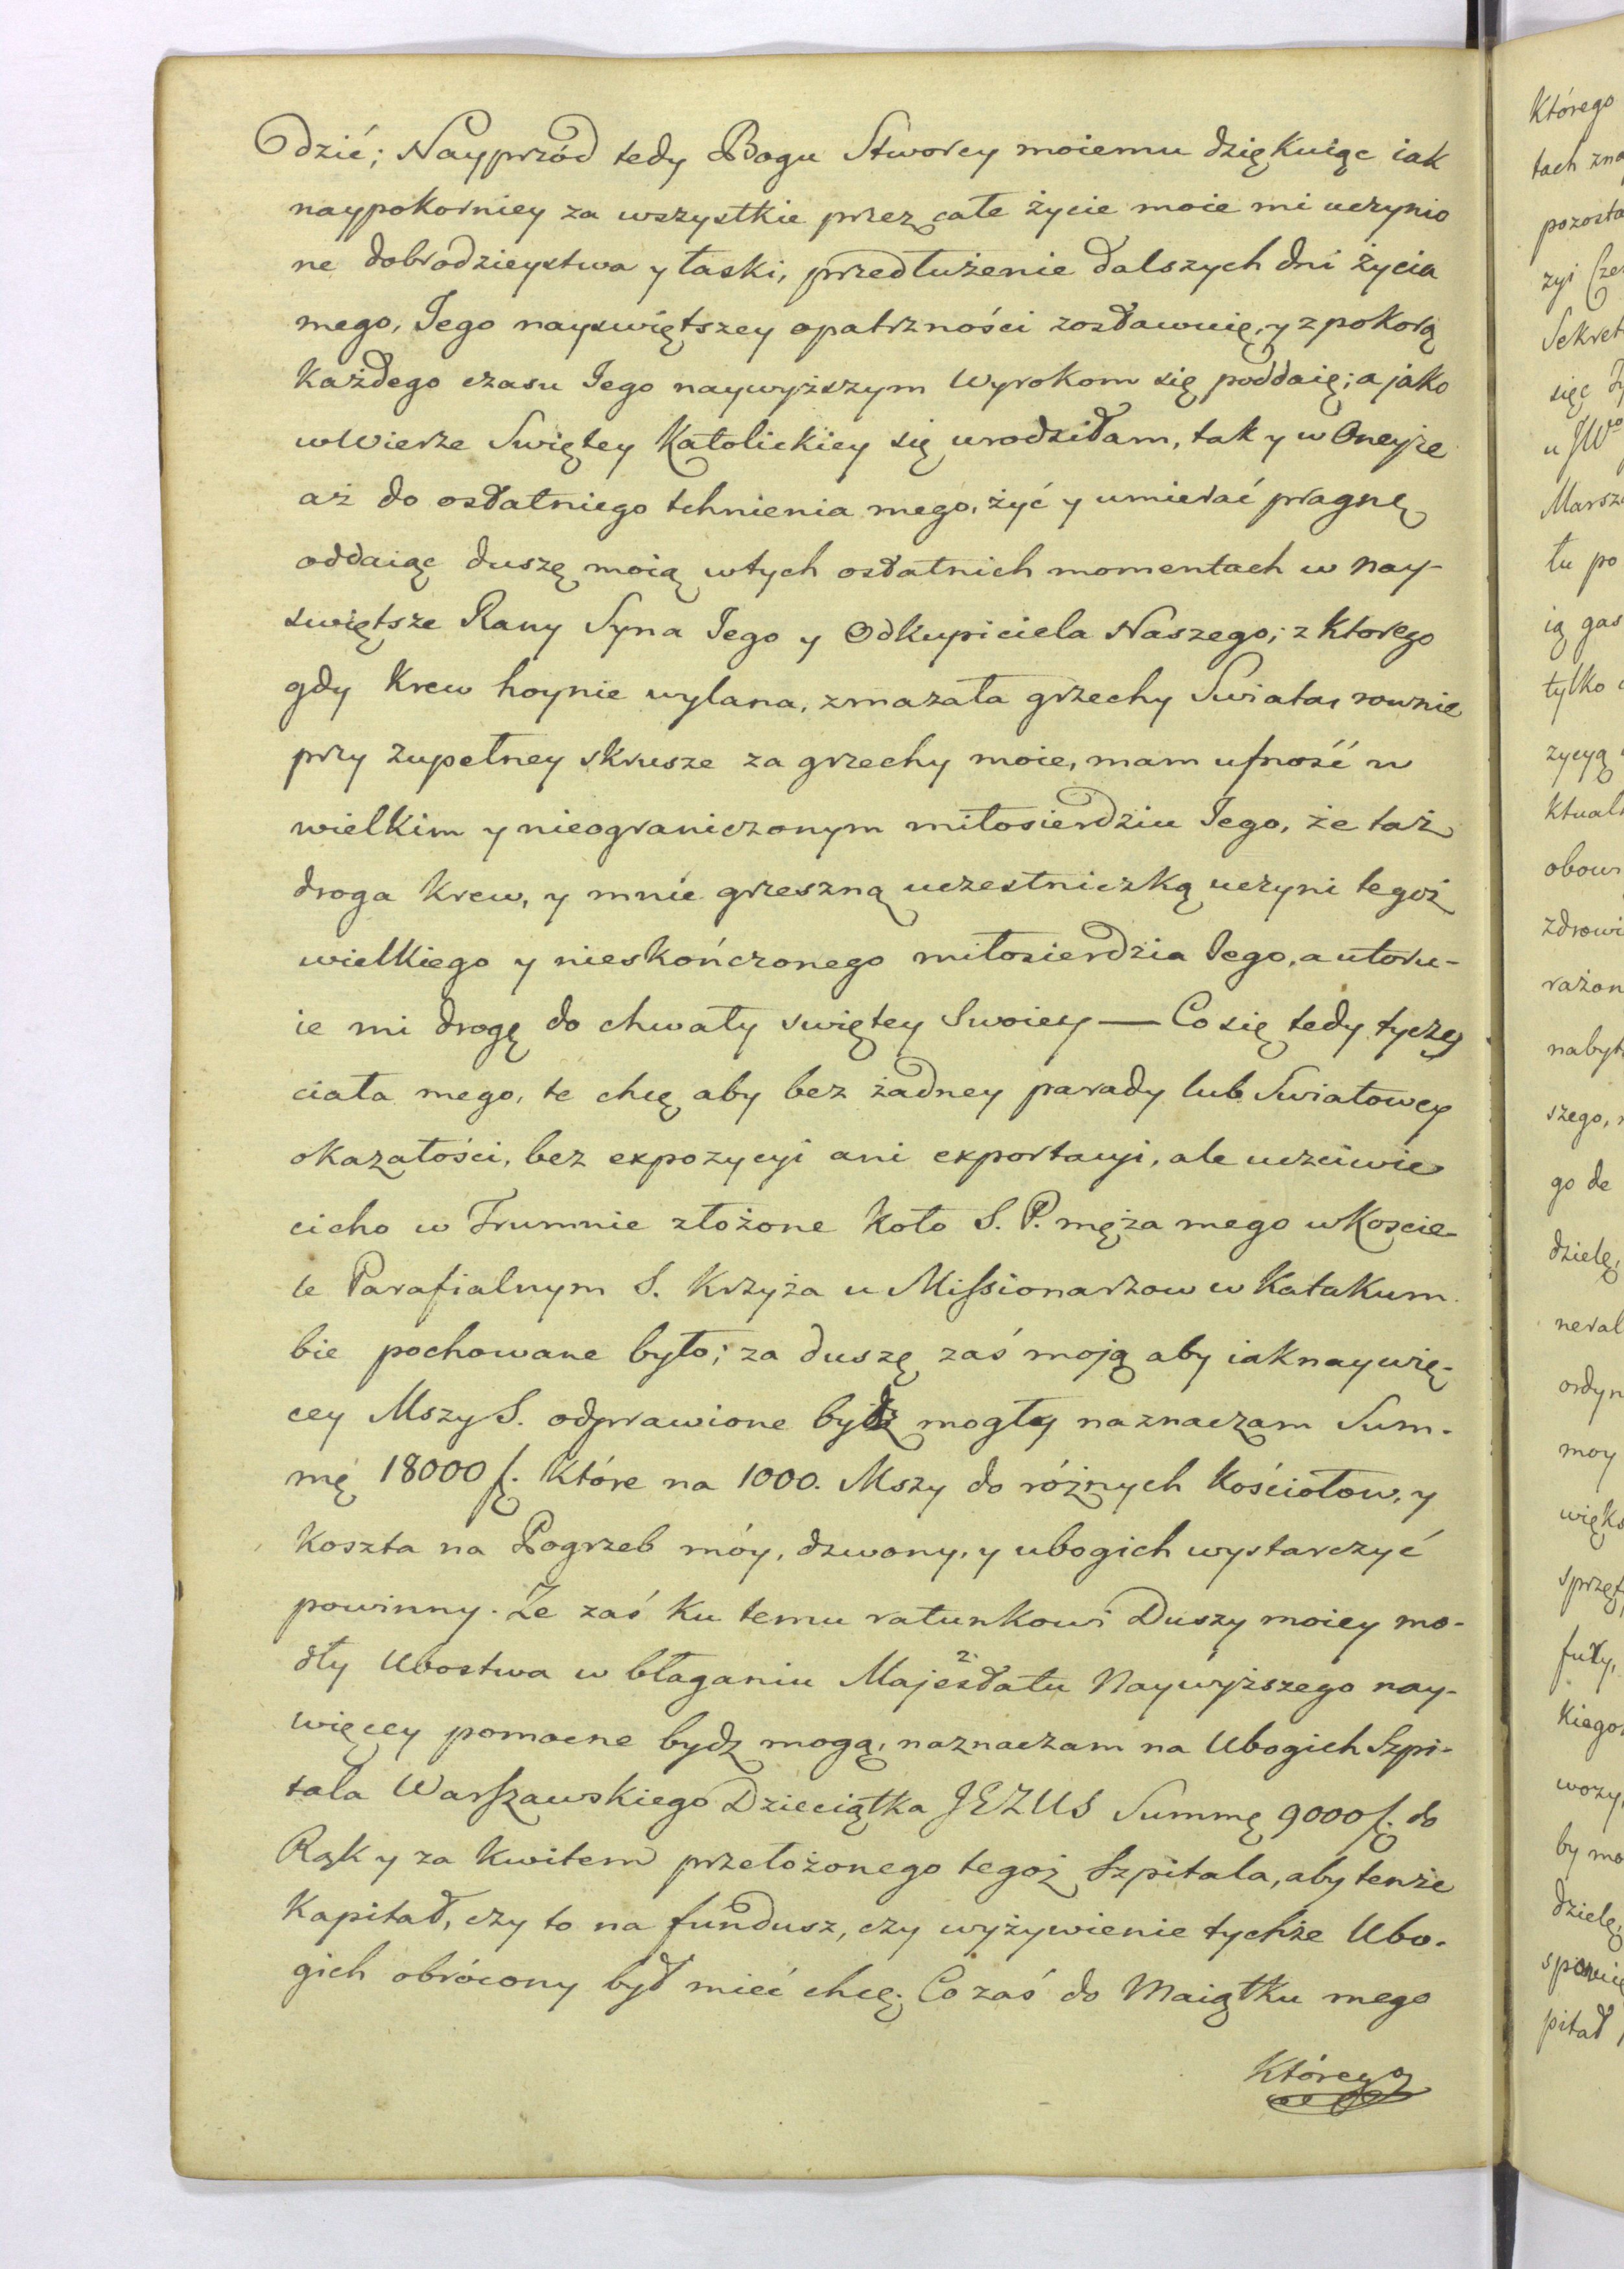 dzić; Nayprzód tedy Bogu Stworcy moiemu dziękuiąc iak
naypokorniey za wszystkie przez całe życie moie mi uczynio
ne dobrodzieystwa y łaski, przedłużenie dalszych dni życia
mego, Jego nayswiętszey opatrzności zostawuię, y z pokorą
każdego czasu Jego naywyższym Wyrokom się poddaię; a jako
w Wierze Swiętey Katolickiey się urodziłam, tak y w Oneyże
aż do ostatniego tchnienia mego, żyć y umierać pragnę
oddaiąc duszę moią w tych ostatnich momentach w nay-
swiętsze Rany Syna Jego y Odkupiciela Naszego; z Ktorego
gdy Krew hoynie wylana, zmazała grzechy Swiata, rownie
przy zupełney skrusze za grzechy moie, mam ufność w
wielkim y nieograniczonym miłosierdziu Jego, że taż
droga Krew, y mnie grzeszną uczestniczką uczyni tegoż
wielkiego y nieskończonego miłosierdzia Jego, a utoru-
ie mi drogę do chwały swiętey Swoiey — Co się tedy tycze
ciała mego, te chcę aby bez żadney parady lub Swiatowey
okazałości, bez expozycyi ani exportacyi, ale uczciwie
cicho w Trumnie złożone koło S. P. męża mego w Koscie-
le Parafialnym S. Krzyża u Missionarzow w Katakum
bie pochowane było; za duszę zaś moją aby iak naywię-
cey Mszy S. odprawione bydz mogły naznaczam Sum-
mę 18000 f. Które na 1000. Mszy do różnych Kościołow, y
Koszta na Pogrzeb móy, dzwony, y ubogich wystarczyć
powinny. Że zaś Ku temu ratunkowi Duszy moiey mo-
dły Ubostwa w błaganiu Majestatu Naywyższego nay-
2.
więcey pomocne bydz mogą, naznaczam na Ubogich Szpi-
tala Warszawskiego Dzieciątka JEZUS Summę 9000 f. do
Rąk y za Kwitem przełożonego tegoż Szpitala, aby tenże
Kapitał, czy to na fundusz, czy wyżywienie tychże Ubo-
gich obrócony był mieć chcę. Co zaś do Maiątku mego
Którego
tach
pozosta
zyi
Sekret
sięc
u JWo
Marsz
tu po
ią gas
tylko
zycyą
ktual
obow
zdrowi
rażon
nabyt
szego,
go de
dzielę,
neral
ordyn
moy
więks
sprzęt
Kiego
wozy,
by mo
dzielę,
pitał